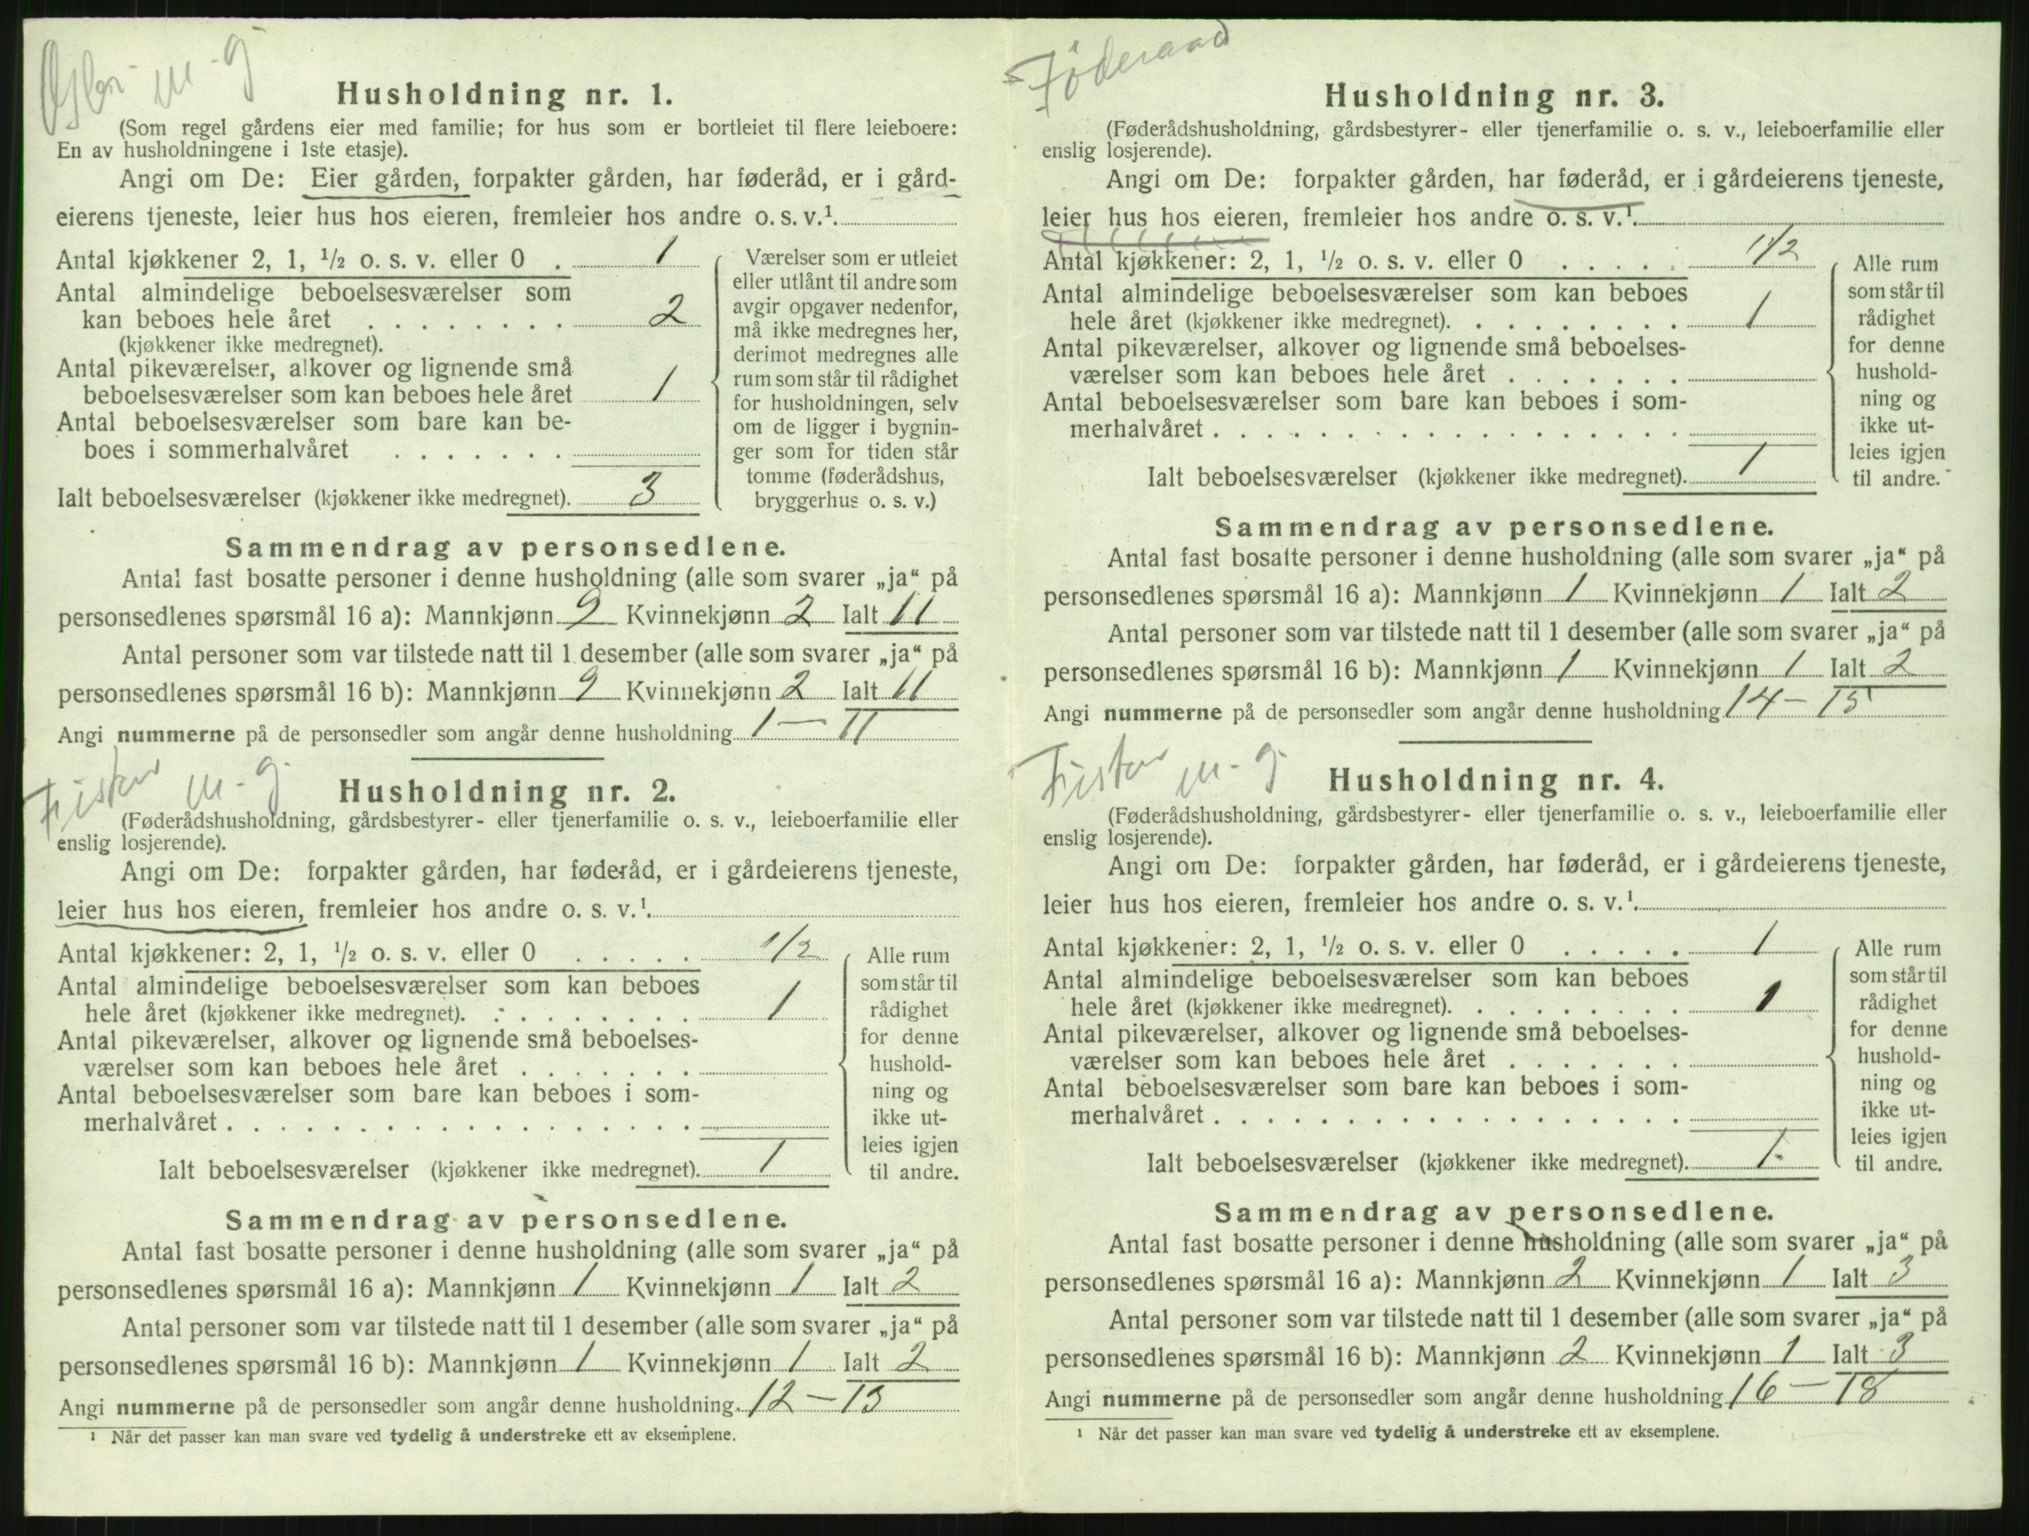 m. g
Husholdning nr. 1.
(Som regel gårdens eier med familie; for hus som er bortleiet til flere leieboere:
En av husholdningene i 1ste etasje).
Angi om De: Eier gården, forpakter gården, har føderåd, er i gård-
eierens tjeneste, leier hus hos eieren, fremleier hos andre o. s. v.¹
Antal kjøkkener 2, 1, ½ o. s. v. eller 0 . 1
Antal almindelige beboelsesværelser som
kan beboes hele året . . . . . . . . 2
(kjøkkener ikke medregnet).
Antal pikeværelser, alkover og lignende små
beboelsesværelser som kan beboes hele året 1
Antal beboelsesværelser som bare kan be-
boes i sommerhalvåret . . . . . . .
Ialt beboelsesværelser (kjøkkener ikke medregnet). 3
Værelser som er utleiet
eller utlånt til andre som
avgir opgaver nedenfor,
må ikke medregnes her,
derimot medregnes alle
rum som står til rådighet
for husholdningen, selv
om de ligger i bygnin-
ger som for tiden står
tomme (føderådshus,
bryggerhus o. s. v.)
Sammendrag av personsedlene.
Antal fast bosatte personer i denne husholdning (alle som svarer „ja“ på
personsedlenes spørsmål 16 a): Mannkjønn 9 Kvinnekjønn 2 Ialt 11
Antal personer som var tilstede natt til 1 desember (alle som svarer „ja“ på
personsedlenes spørsmål 16 b): Mannkjønn 9 Kvinnekjønn 2 Ialt 11
Angi nummerne på de personsedler som angår denne husholdning 1 — 11
m. g.
Husholdning nr. 2.
(Føderådshusholdning, gårdsbestyrer- eller tjenerfamilie o. s. v., leieboerfamilie eller
enslig losjerende).
Angi om De: forpakter gården, har føderåd, er i gårdeierens tjeneste,
leier hus hos eieren, fremleier hos andre o. s. v.¹
Antal kjøkkener: 2, 1, ½ o. s. v. eller 0 . . . . . 1/2
Antal almindelige beboelsesværelser som kan beboes
hele året (kjøkkener ikke medregnet). . . . . . . . . 1
Antal pikeværelser, alkover og lignende små beboelses-
værelser som kan beboes hele året . . . . . . .
Antal beboelsesværelser som bare kan beboes i som-
merhalvåret . . . . . . . . . . . . . . . . . .
Ialt beboelsesværelser (kjøkkener ikke medregnet). 1
Alle rum
som står til
rådighet
for denne
hushold-
ning og
ikke ut-
leies igjen
til andre.
Sammendrag av personsedlene.
Antal fast bosatte personer i denne husholdning (alle som svarer „ja“ på
personsedlenes spørsmål 16 a): Mannkjønn 1 Kvinnekjønn 1 Ialt 2
Antal personer som var tilstede natt til 1 desember (alle som svarer „ja“ på
personsedlenes spørsmål 16 b): Mannkjønn 1 Kvinnekjønn 1 Ialt 2
Angi nummerne på de personsedler som angår denne husholdning. 12 — 13
¹ Når det passer kan man svare ved tydelig å understreke ett av eksemplene.
Føderaad
Husholdning nr. 3.
(Føderådshusholdning, gårdsbestyrer- eller tjenerfamilie o. s. v., leieboerfamilie eller
enslig losjerende).
Angi om De: forpakter gården, har føderåd, er i gårdeierens tjeneste,
leier hus hos eieren, fremleier hos andre o. s. v.¹
Antal kjøkkener: 2, 1, ½ o. s. v. eller 0 . . . . . 1/2
Antal almindelige beboelsesværelser som kan beboes
hele året (kjøkkener ikke medregnet). . . . . . . . . 1
Antal pikeværelser, alkover og lignende små beboelses-
værelser som kan beboes hele året . . . . . . .
Antal beboelsesværelser som bare kan beboes i som-
merhalvåret . . . . . . . . . . . . . . . . . .
Ialt beboelsesværelser (kjøkkener ikke medregnet). 1
Alle rum
som står til
rådighet
for denne
hushold-
ning og
ikke ut-
leies igjen
til andre.
Sammendrag av personsedlene.
Antal fast bosatte personer i denne husholdning (alle som svarer „ja“ på
personsedlenes spørsmål 16 a): Mannkjønn 1 Kvinnekjønn 1 Ialt 2
Antal personer som var tilstede natt til 1 desember (alle som svarer „ja“ på
personsedlenes spørsmål 16 b): Mannkjønn 1 Kvinnekjønn 1 Ialt 2
Angi nummerne på de personsedler som angår denne husholdning 14 — 15
m. g.
Husholdning nr. 4.
(Føderådshusholdning, gårdsbestyrer- eller tjenerfamilie o. s. v., leieboerfamilie eller
enslig losjerende).
Angi om De: forpakter gården, har føderåd, er i gårdeierens tjeneste,
leier hus hos eieren, fremleier hos andre o. s. v.¹
Antal kjøkkener: 2, 1, ½ o. s. v. eller 0 . . . . . 1
Antal almindelige beboelsesværelser som kan beboes
hele året (kjøkkener ikke medregnet). . . . . . . . . 1
Antal pikeværelser, alkover og lignende små beboelses-
værelser som kan beboes hele året . . . . . . .
Antal beboelsesværelser som bare kan beboes i som-
merhalvåret . . . . . . . . . . . . . . . . . .
Ialt beboelsesværelser (kjøkkener ikke medregnet). 1.
Alle rum
som står til
rådighet
for denne
hushold-
ning og
ikke ut-
leies igjen
til andre.
Sammendrag av personsedlene.
Antal fast bosatte personer i denne husholdning (alle som svarer „ja“ på
personsedlenes spørsmål 16 a): Mannkjønn 2 Kvinnekjønn 1 Ialt 3
Antal personer som var tilstede natt til 1 desember (alle som svarer „ja“ på
personsedlenes spørsmål 16 b): Mannkjønn 2 Kvinnekjønn 1 Ialt 3
Angi nummerne på de personsedler som angår denne husholdning 16 — 18
¹ Når det passer kan man svare ved tydelig å understreke ett av eksemplene.